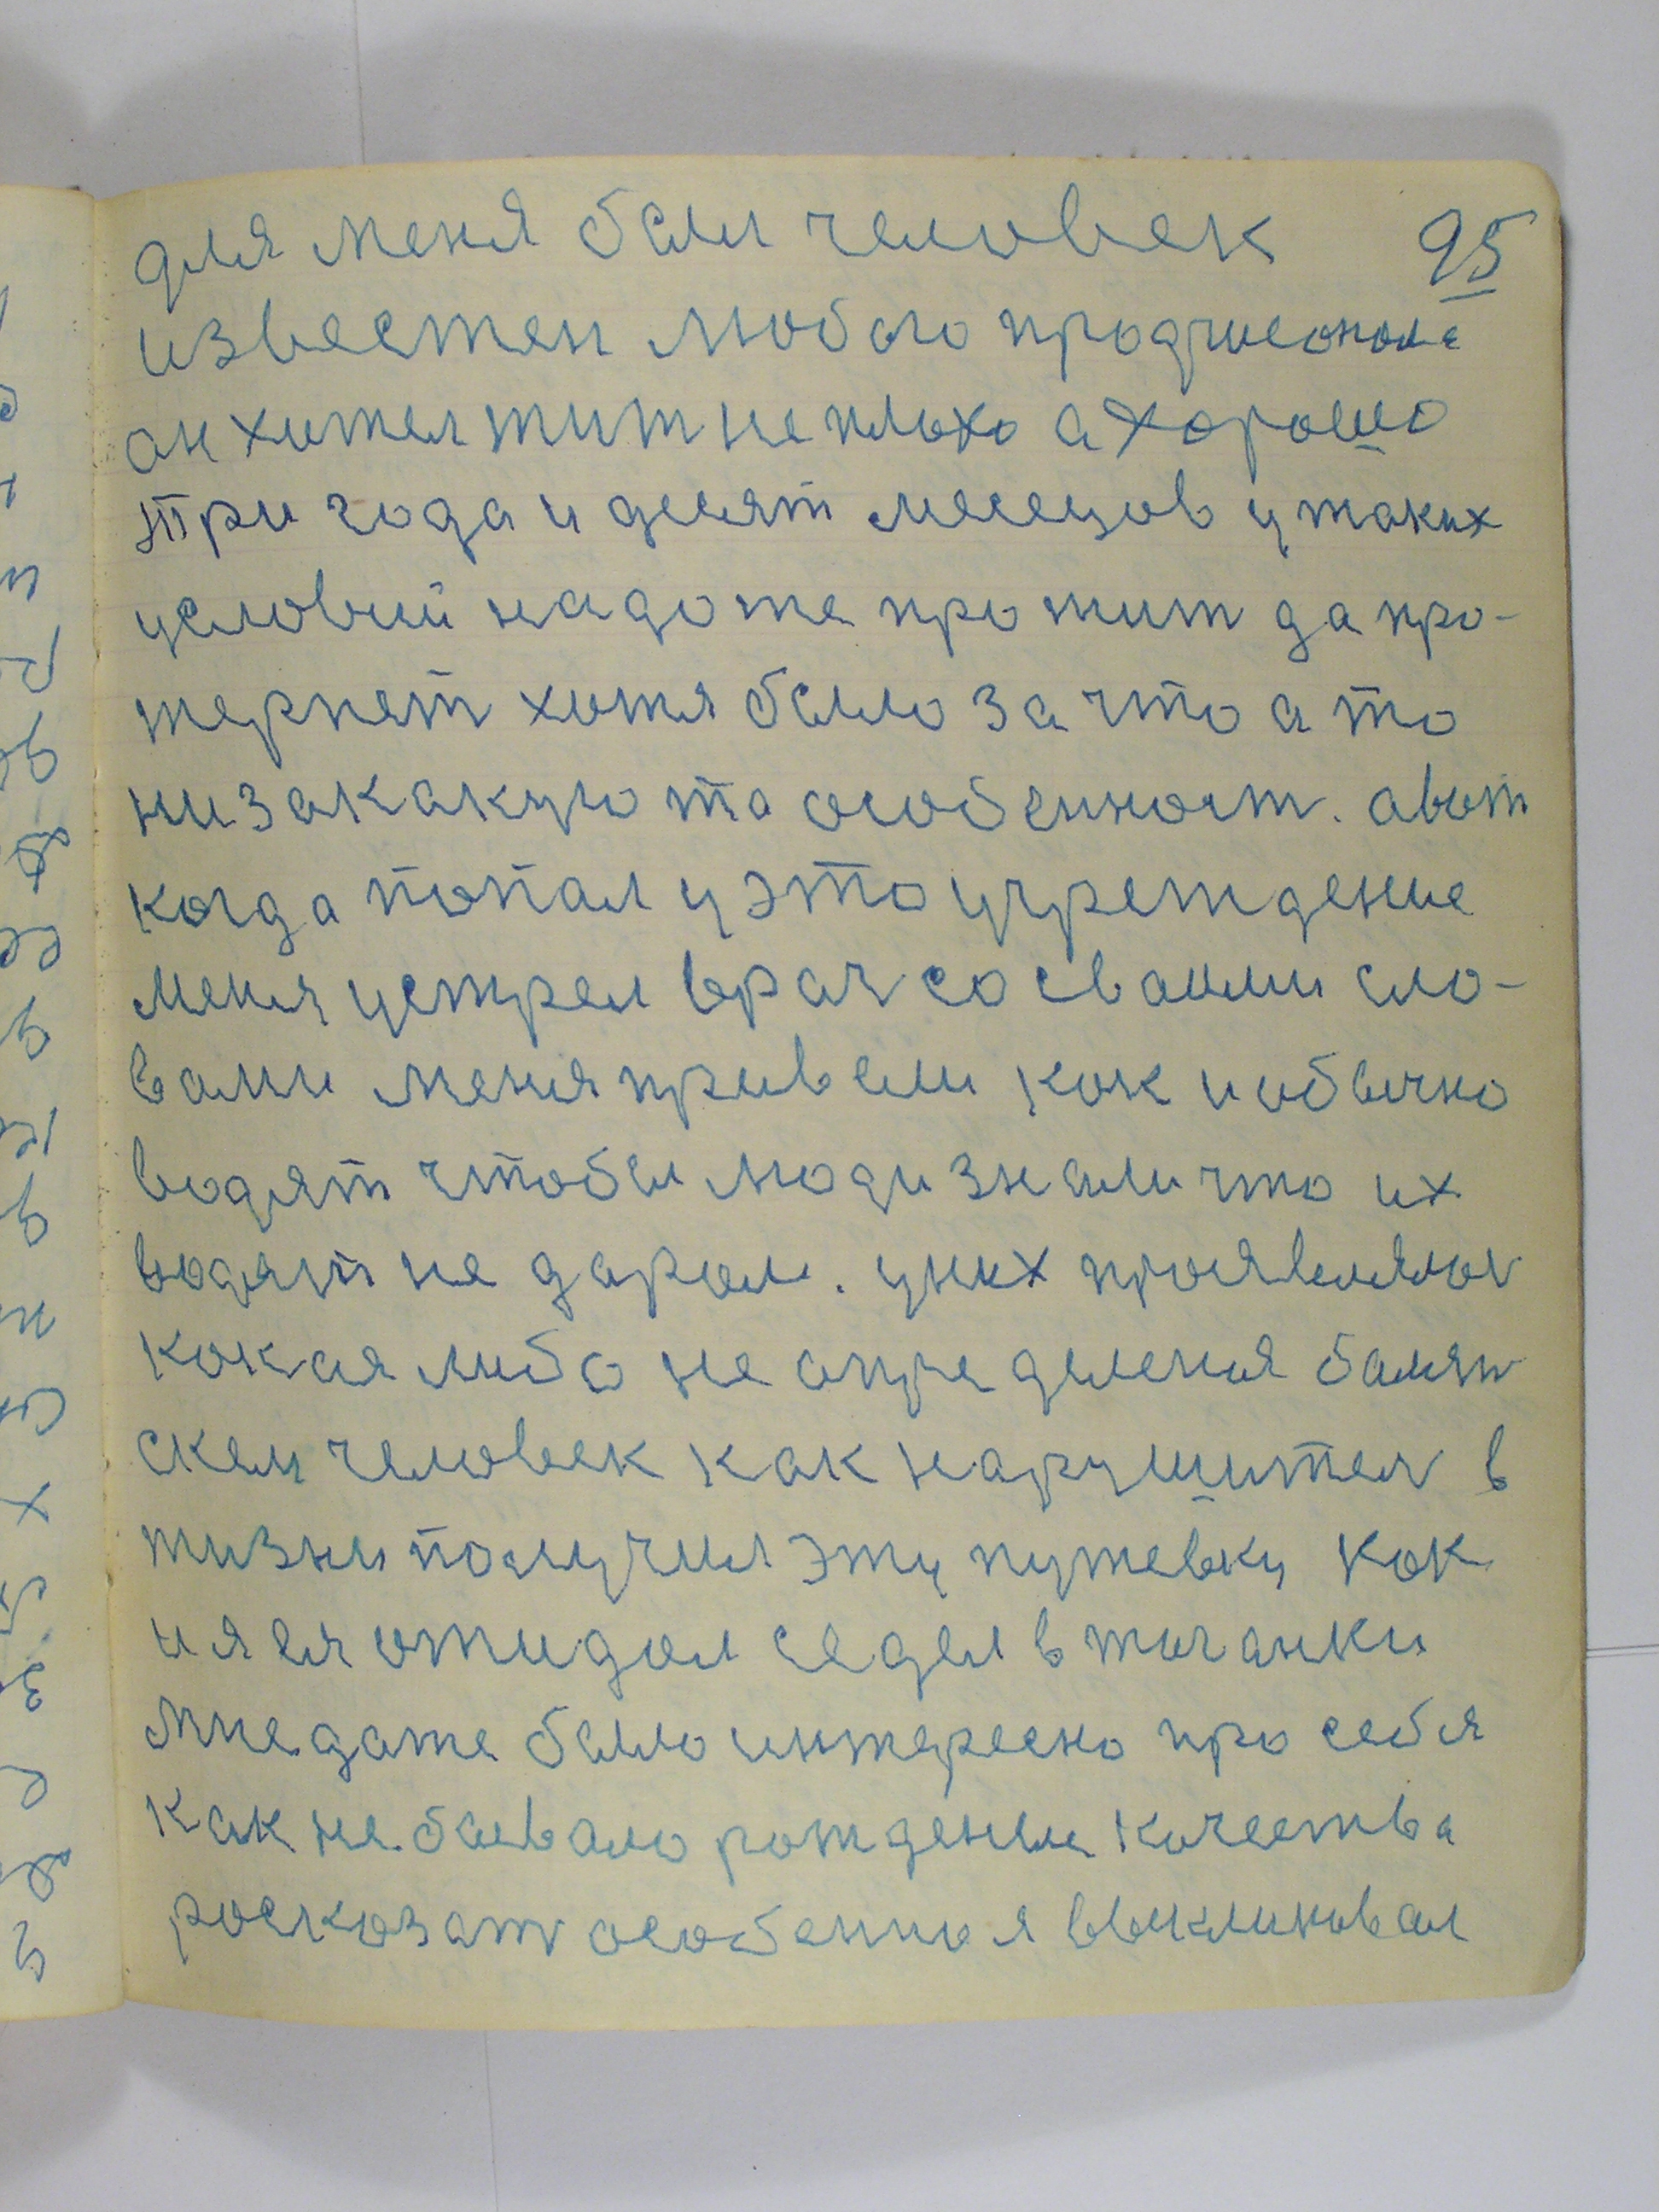 для меня был человек 95
известен любого прафчесонала
он хител жит не плохо а хорошо
три года и десят месецов у таких
условий надо же прожит да про-
терпет хотя было за что а то
ни за какую та особенност. а вот
когда попал у это учреждение
меня устрел врач со сваими сло-
вами меня привели как и обычно
водят чтобы люди знали что их
водят не даром. у них проявлялас
какая либо не определеная
человек как нарушител в
жизни получил эту путевку как
и я ея ожидал седел в таганки
мне даже было интересно про себя
как не бывало рождении качества
росказат особенно я выклиновал